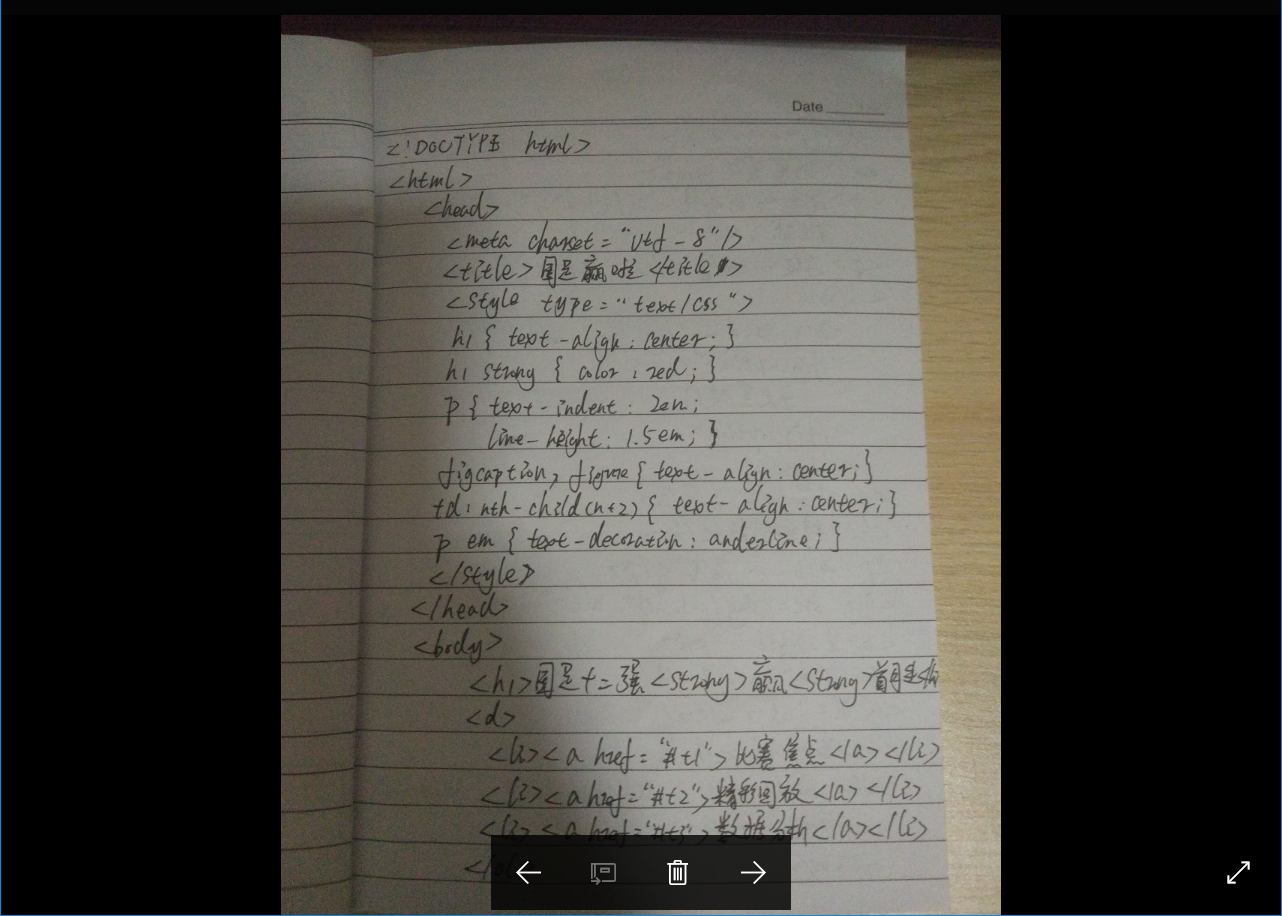 Date
<!DOCTYPE html>
<html>
<head>
<meta charset="utf-8"/>
<title>国足赢啦</title>
<style type="text/css">
h1{text-align:center;}
h1 strong{color:red;}
p{text-indent:2em;
line-height:1.5em;}
figcaption,figure{text-align:center;}
td:nth-child(n+2){text-align:center;}
p em{text-decoration:anderline;}
</style>
</head>
<body>
<h1>国足十二强<strong>赢<strong>
<d>
<li><a href="#t1">比赛焦点</a></li>
<li><a href="#t2">精彩回放</a></li>
<li><a href="#t3">数据分析</a></li>